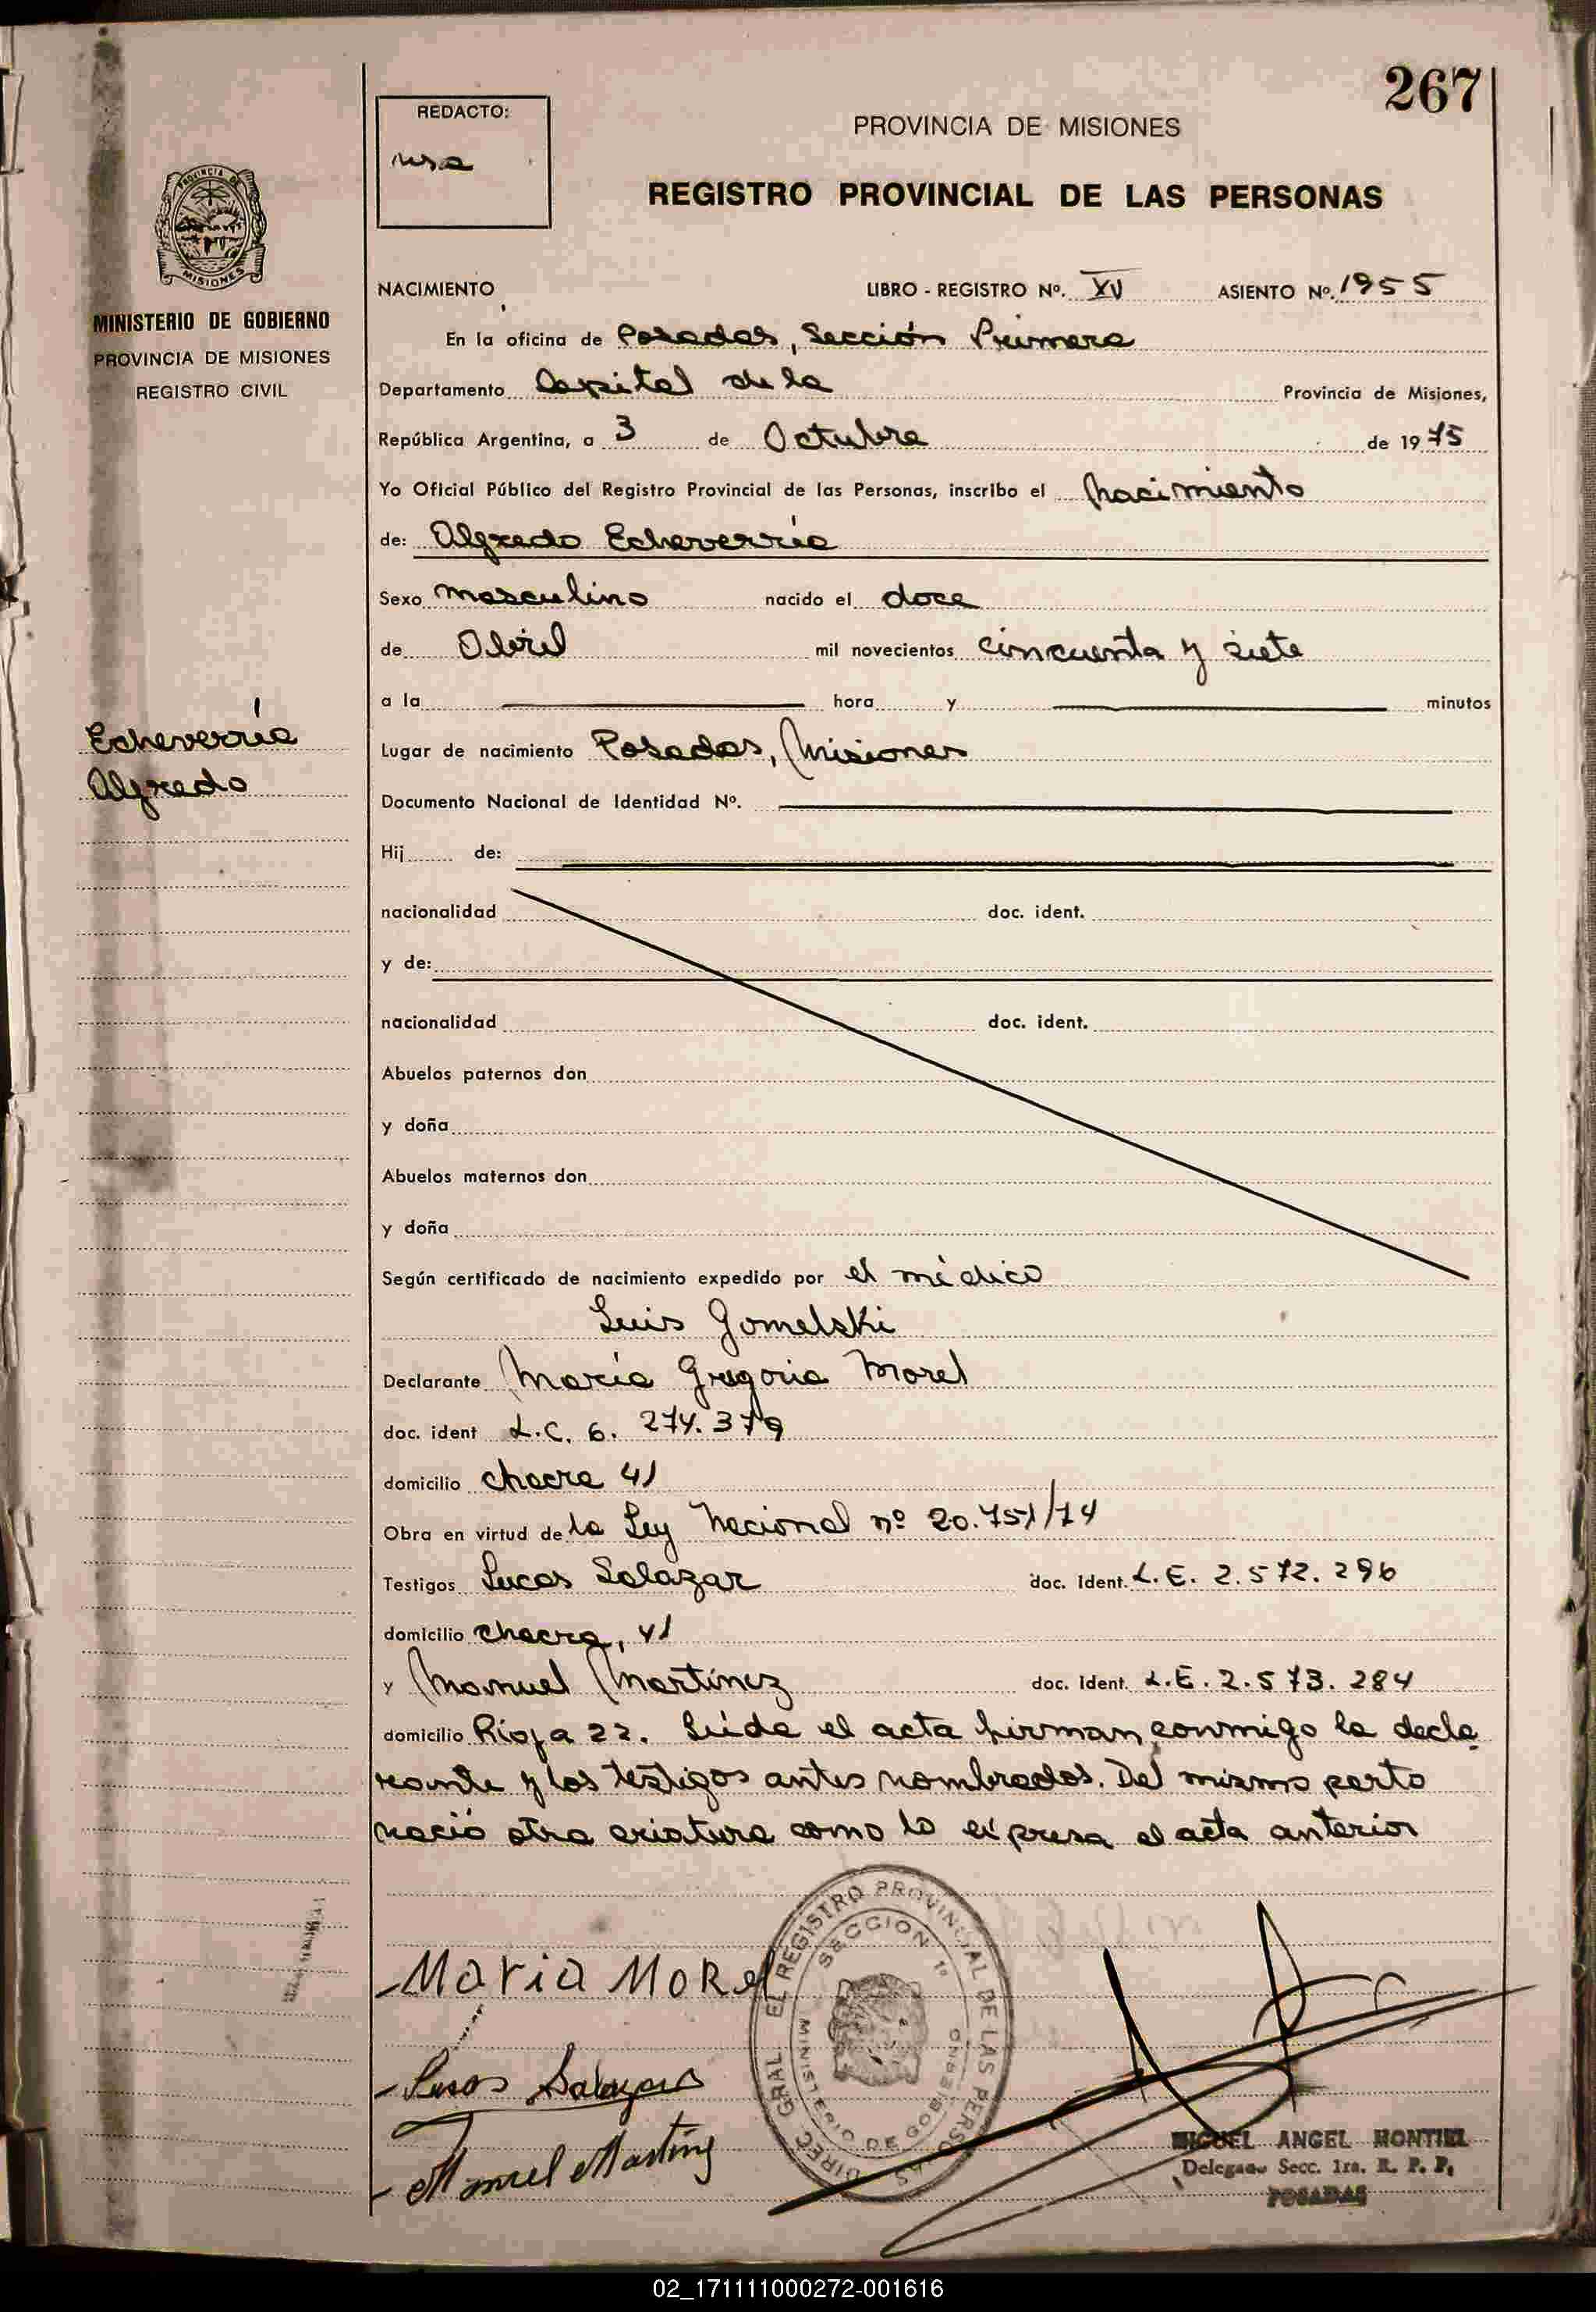 267
REDACTO:
PROVINCIA DE MISIONES
REGISTRO PROVINCIAL DE LAS PERSONAS
PROVINCIA DE
MISIONES
MINISTERIO DE GOBIERNO
PROVINCIA DE MISIONES
REGISTRO CIVIL
NACIMIENTO LIBRO - REGISTRO Nº. XV ASIENTO Nº. 1955
En la oficina de Posadas, Sección Primera
Departamento Capital de la Provincia de Misiones,
República Argentina, a 3 de Octubre de 1975
Yo Oficial Público del Registro Provincial de las Personas, inscribo el nacimiento
de: Alfredo Echeverría
Sexo masculino nacido el doce
de Abril mil novecientos cincuenta y siete
a la hora y minutos
Echeverría
Alfredo
Lugar de nacimiento Posadas, Misiones
Documento Nacional de Identidad Nº.
Hij de:
nacionalidad doc. ident.
y de:
nacionalidad doc. ident.
Abuelos paternos don
y doña
Abuelos maternos don
y doña
Según certificado de nacimiento expedido por el médico
Luis Gomelski
Declarante María Gregoria Morel
doc. ident L.C. 6. 274. 379
domicilio chacra 41
Obra en virtud de la Ley Nacional nº 20.751/74
Testigos Lucas Salazar doc. Ident. L.E. 2.572.296
domicilio chacra, 41
y Manuel Martínez doc. Ident. L.E. 2.573.284
domicilio Rioja 22. Leída el acta firman conmigo la decla
rante y los testigos antes nombrados. Del mismo parto
nació otra criatura como lo expresa el acta anterior
DIREC. GRAL. EL REGISTRO PROVINCIAL DE LAS PERSONAS
SECCION 1ª
MINISTERIO DE GOBIERNO
-Maria MoRel
- Lucas Salazar
- Manuel Martinez
MIGUEL ANGEL MONTIEL
Delegado Secc. 1ra. R. P. P.
POSADAS
02_171111000272-001616